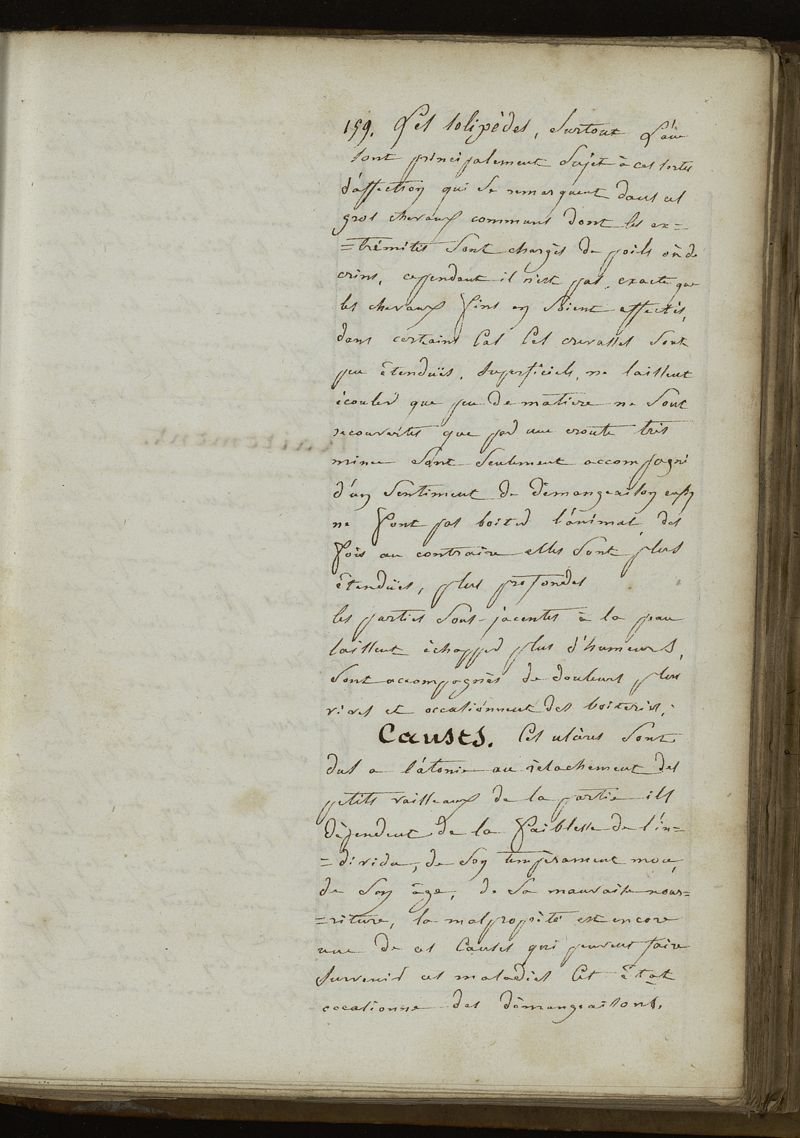 159. Les solipèdes, surtout l'âne
sont principalement sujet à ces sortes
d'affection qui se remarquent dans ces
gros chevaux communs dont les ex=
=trémités sont chargés de poils où de
crins, cependant il n'est pas exacte que
les chevaux fins en soient affectés,
dans certains cas ces crevasses sont
peu étenduës, superficiels, ne laissent
écouler que peu de matiere ne sont
recouvertes que par une croute très
mince sont seulement accompagné
d'un sentiment de démangeaison enfin
ne font pas boiter l'animal, des
fois au contraire elles sont plus
étenduës, plus profondes
les parties sous-jacentes à la peau
laissent échapper plus d'humeurs,
sont accompagnés de douleurs plus
vives et occasionnent des boiteries;
Causes. Ces ulcères sont
dus a l'átonie au relachement des
petits vaisseaux de la partie ils
dépendent de la faiblesse de l'in=
=dividu, de son tempérament mou,
de son âge, de sa mauvaise nour=
=riture, la malpropété est encore
une de ces Causes qui peuvent faire
survenir ces maladies Cet état
occasionne des démangeaisons.